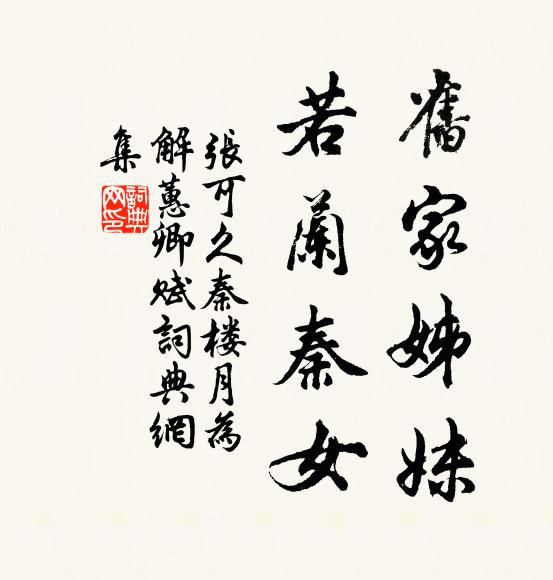 舊家姊妹
若蘭秦女
張可久秦楼月為
解蕙卿赋詞典網
集
詞典
网印